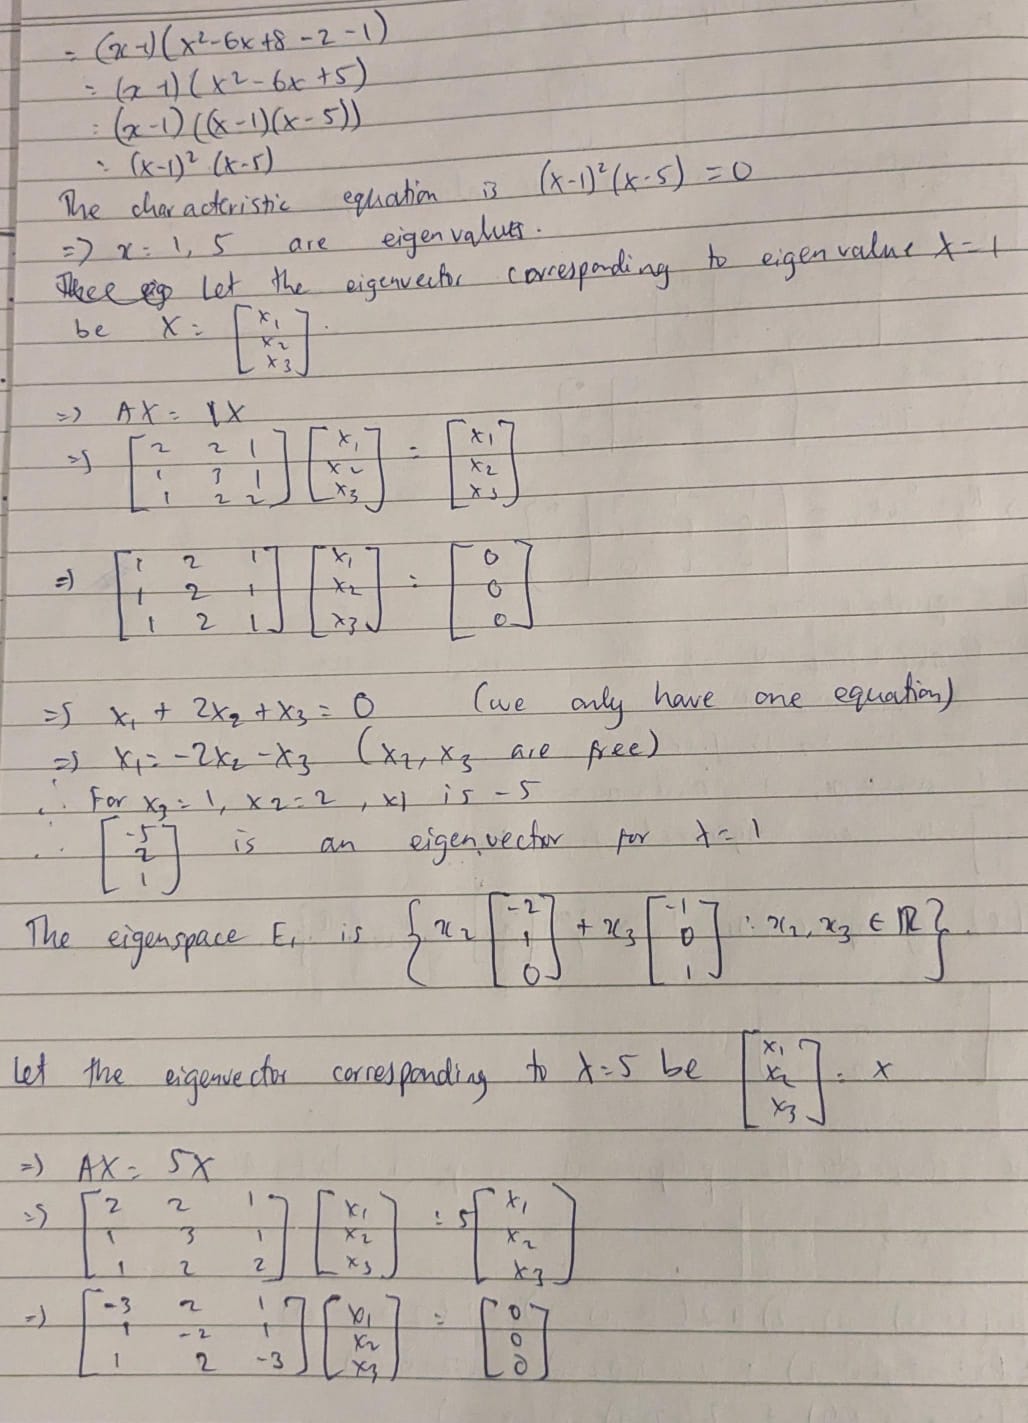 = (x-1)(x²-6x+8-2-1)
= (x-1)(x²-6x+5)
= (x-1)((x-1)(x-5))
= (x-1)² (x-5)
The characteristic equation is (x-1)²(x-5) = 0
=> x = 1, 5 are eigenvalues.
Let the eigenvector corresponding to eigenvalue λ=1
be X = [x₁ x₂ x₃].
=> AX = 1X
=> [2 2 1; 1 3 1; 1 2 2] [x₁ x₂ x₃] = [x₁ x₂ x₃]
=> [1 2 1; 1 2 1; 1 2 1] [x₁ x₂ x₃] = [0 0 0]
=> x₁ + 2x₂ + x₃ = 0 (we only have one equation)
=> x₁ = -2x₂ - x₃ (x₂, x₃ are free)
∴ For x₃ = 1, x₂ = 2, x₁ is -5
∴ [-5 2 1] is an eigenvector for λ = 1
The eigenspace E₁ is {x₂ [-2 1 0] + x₃ [-1 0 1] : x₂, x₃ ∈ ℝ}.
Let the eigenvector corresponding to λ=5 be [x₁ x₂ x₃] = X
=> AX = 5X
=> [2 2 1; 1 3 1; 1 2 2] [x₁ x₂ x₃] = 5 [x₁ x₂ x₃]
=> [-3 2 1; 1 -2 1; 1 2 -3] [x₁ x₂ x₃] = [0 0 0]